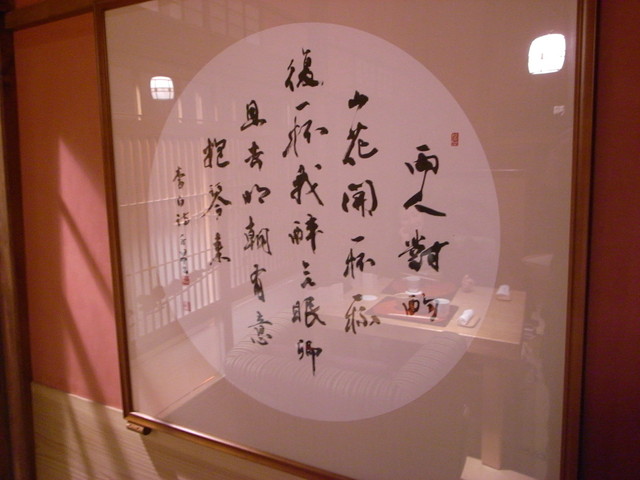 兩人對酌
山花開一杯一杯
復一杯我醉欲眠卿
且去明朝有意
抱琴來
李白詩